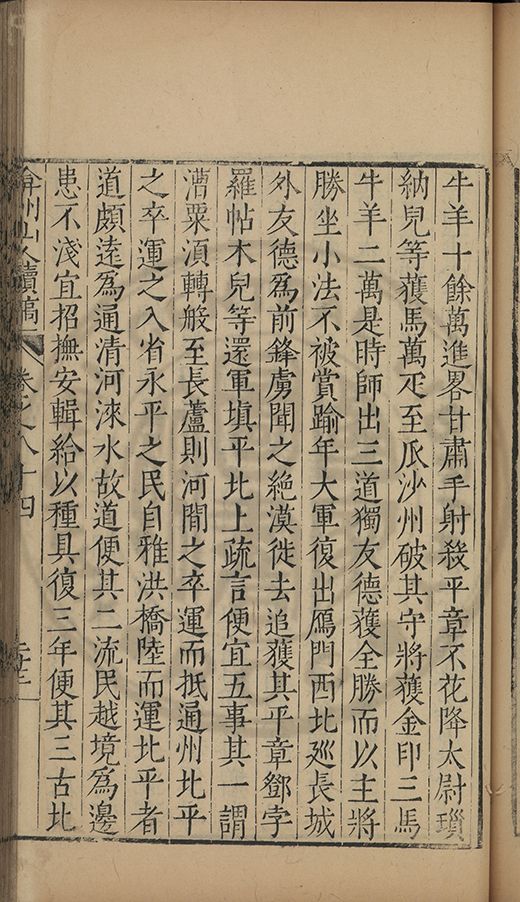 牛羊十餘萬進畧甘肅手射殺平章不花降太尉瑣
納兒等獲馬萬疋至瓜沙州破其守將獲金印三馬
牛羊二萬是時師出三道獨友德獲全勝而以主將
勝坐小法不被賞踰年大軍復出鴈門西北廵長城
外友德爲前鋒虜聞之絶漠徙去追獲其平章鄧孛
羅帖木兒等還軍塡平北上疏言便宜五事其一謂
漕粟湏轉般至長蘆則河間之卒運而抵通州北平
之卒運之入省永平之民自雅洪橋陸而運北平者
道頗遠爲通清河淶水故道便其二流民越境爲邊
患不淺宜招撫安輯給以種具復三年便其三古北
弇州山人續稿 卷之八十四